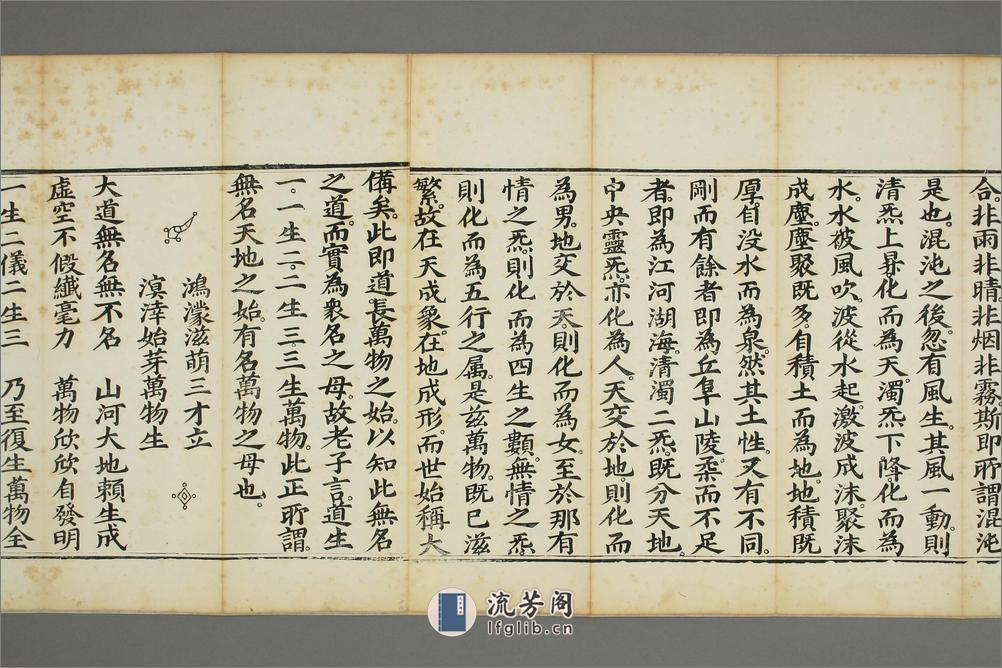 合。非雨非晴非烟非霧。斯即所謂混沌
是也。混沌之後。忽有風生。其風一動。則
清炁上昇。化而為天。濁炁下降。化而為
水。水被風吹。波從水起。激波成沫。聚沫
成塵。塵聚既多。自積土而為地。地積既
厚。自没水而為泉。然其土性。又有不同。
剛而有餘者。即為丘阜山陵。柔而不足
者。即為江河湖海。清濁二炁。既分天地。
中央靈炁。亦化為人。天交於地。則化而
為男。地交於天。則化而為女。至於那有
情之炁。則化而為四生之類。無情之炁
則化而為五行之属。是兹萬物。既已滋
繁。故在天成象。在地成形。而世始稱大
備矣。此即道長萬物之始。以知此無名
之道。而實為衆名之母。故老子言。道生
一。一生二。二生三。三生萬物。此正所謂。
無名天地之始。有名萬物之母也。
鴻濛滋萌三才立
溟涬始芽萬物生
大道無名無不名 山河大地賴生成
虛空不假纖毫力 萬物欣欣自發明
一生二儀二生三 乃至復生萬物全
流芳阁
lfglib.cn